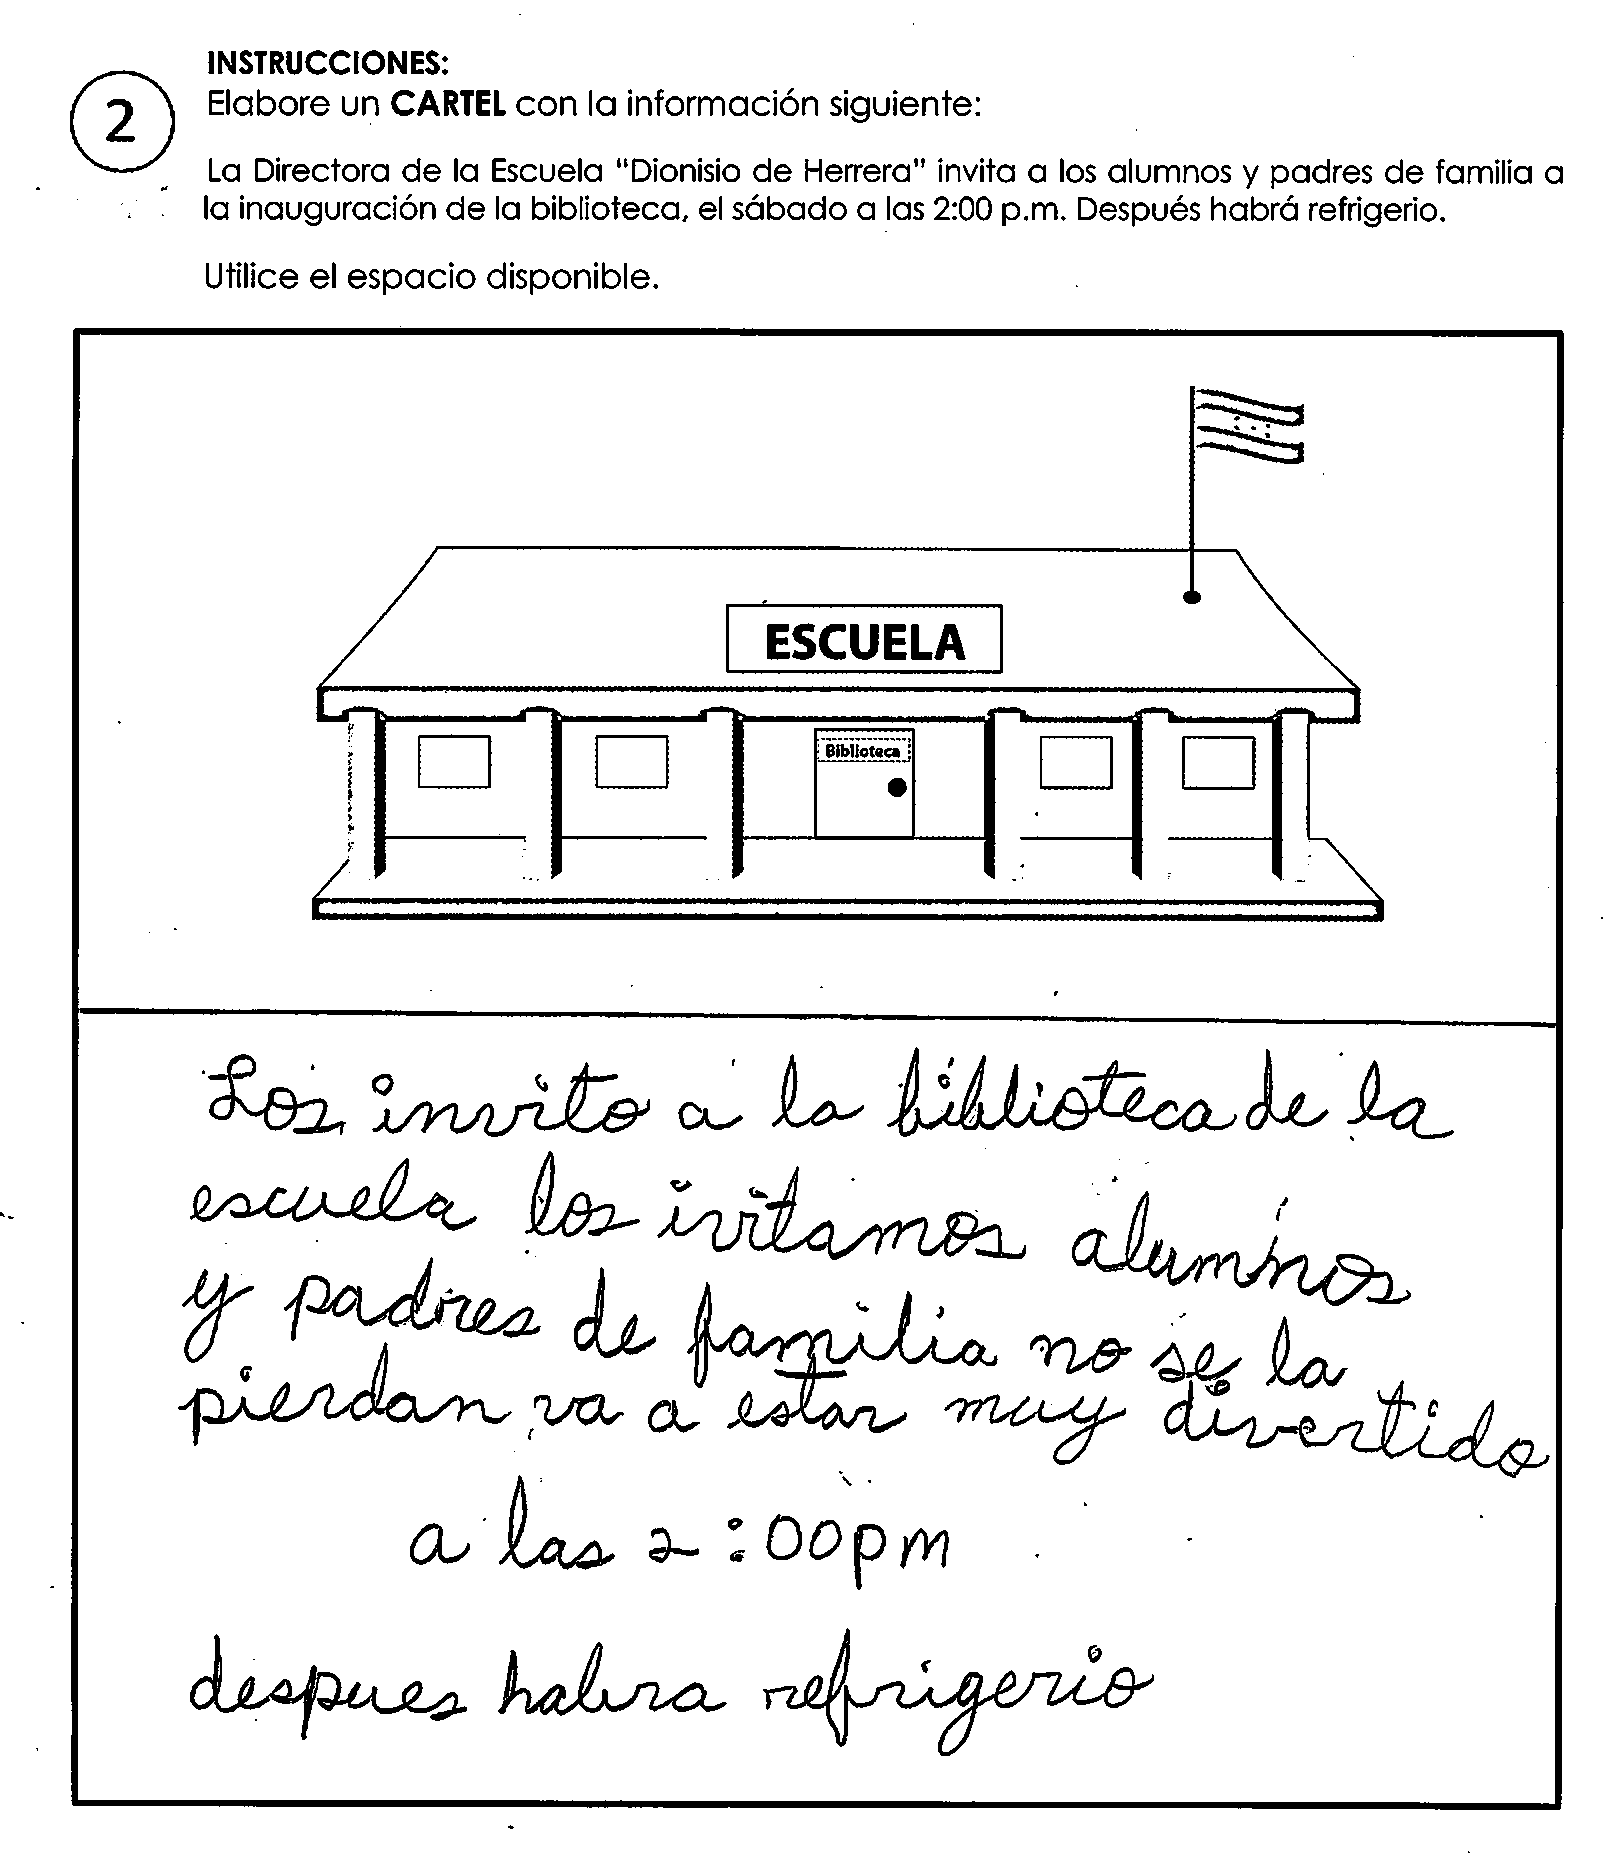 INSTRUCCIONES:
2
Elabore un CARTEL con la información siguiente:
La Directora de la Escuela "Dionisio de Herrera" invita a los alumnos y padres de familia a
la inauguración de la biblioteca, el sábado a las 2:00 p.m. Después habrá refrigerio.
Utilice el espacio disponible.
ESCUELA
Biblioteca
Los invito a la biblioteca de la
escuela los ivitamos alumnos
y padres de familia no se la
pierdan va a estar muy divertido
a las 2:00pm
despues habra refrigerio